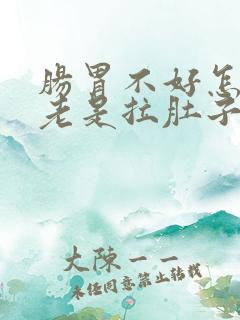 腸胃不好怎
老是拉肚子
大陳一一
未经同意禁止转载